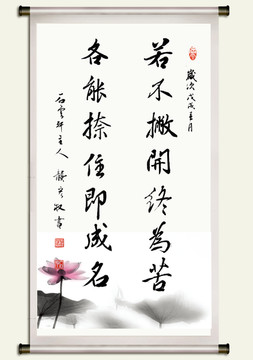 歲次戊戌五月
若不撇開終為苦
各能捺住即成名
石雲軒主人